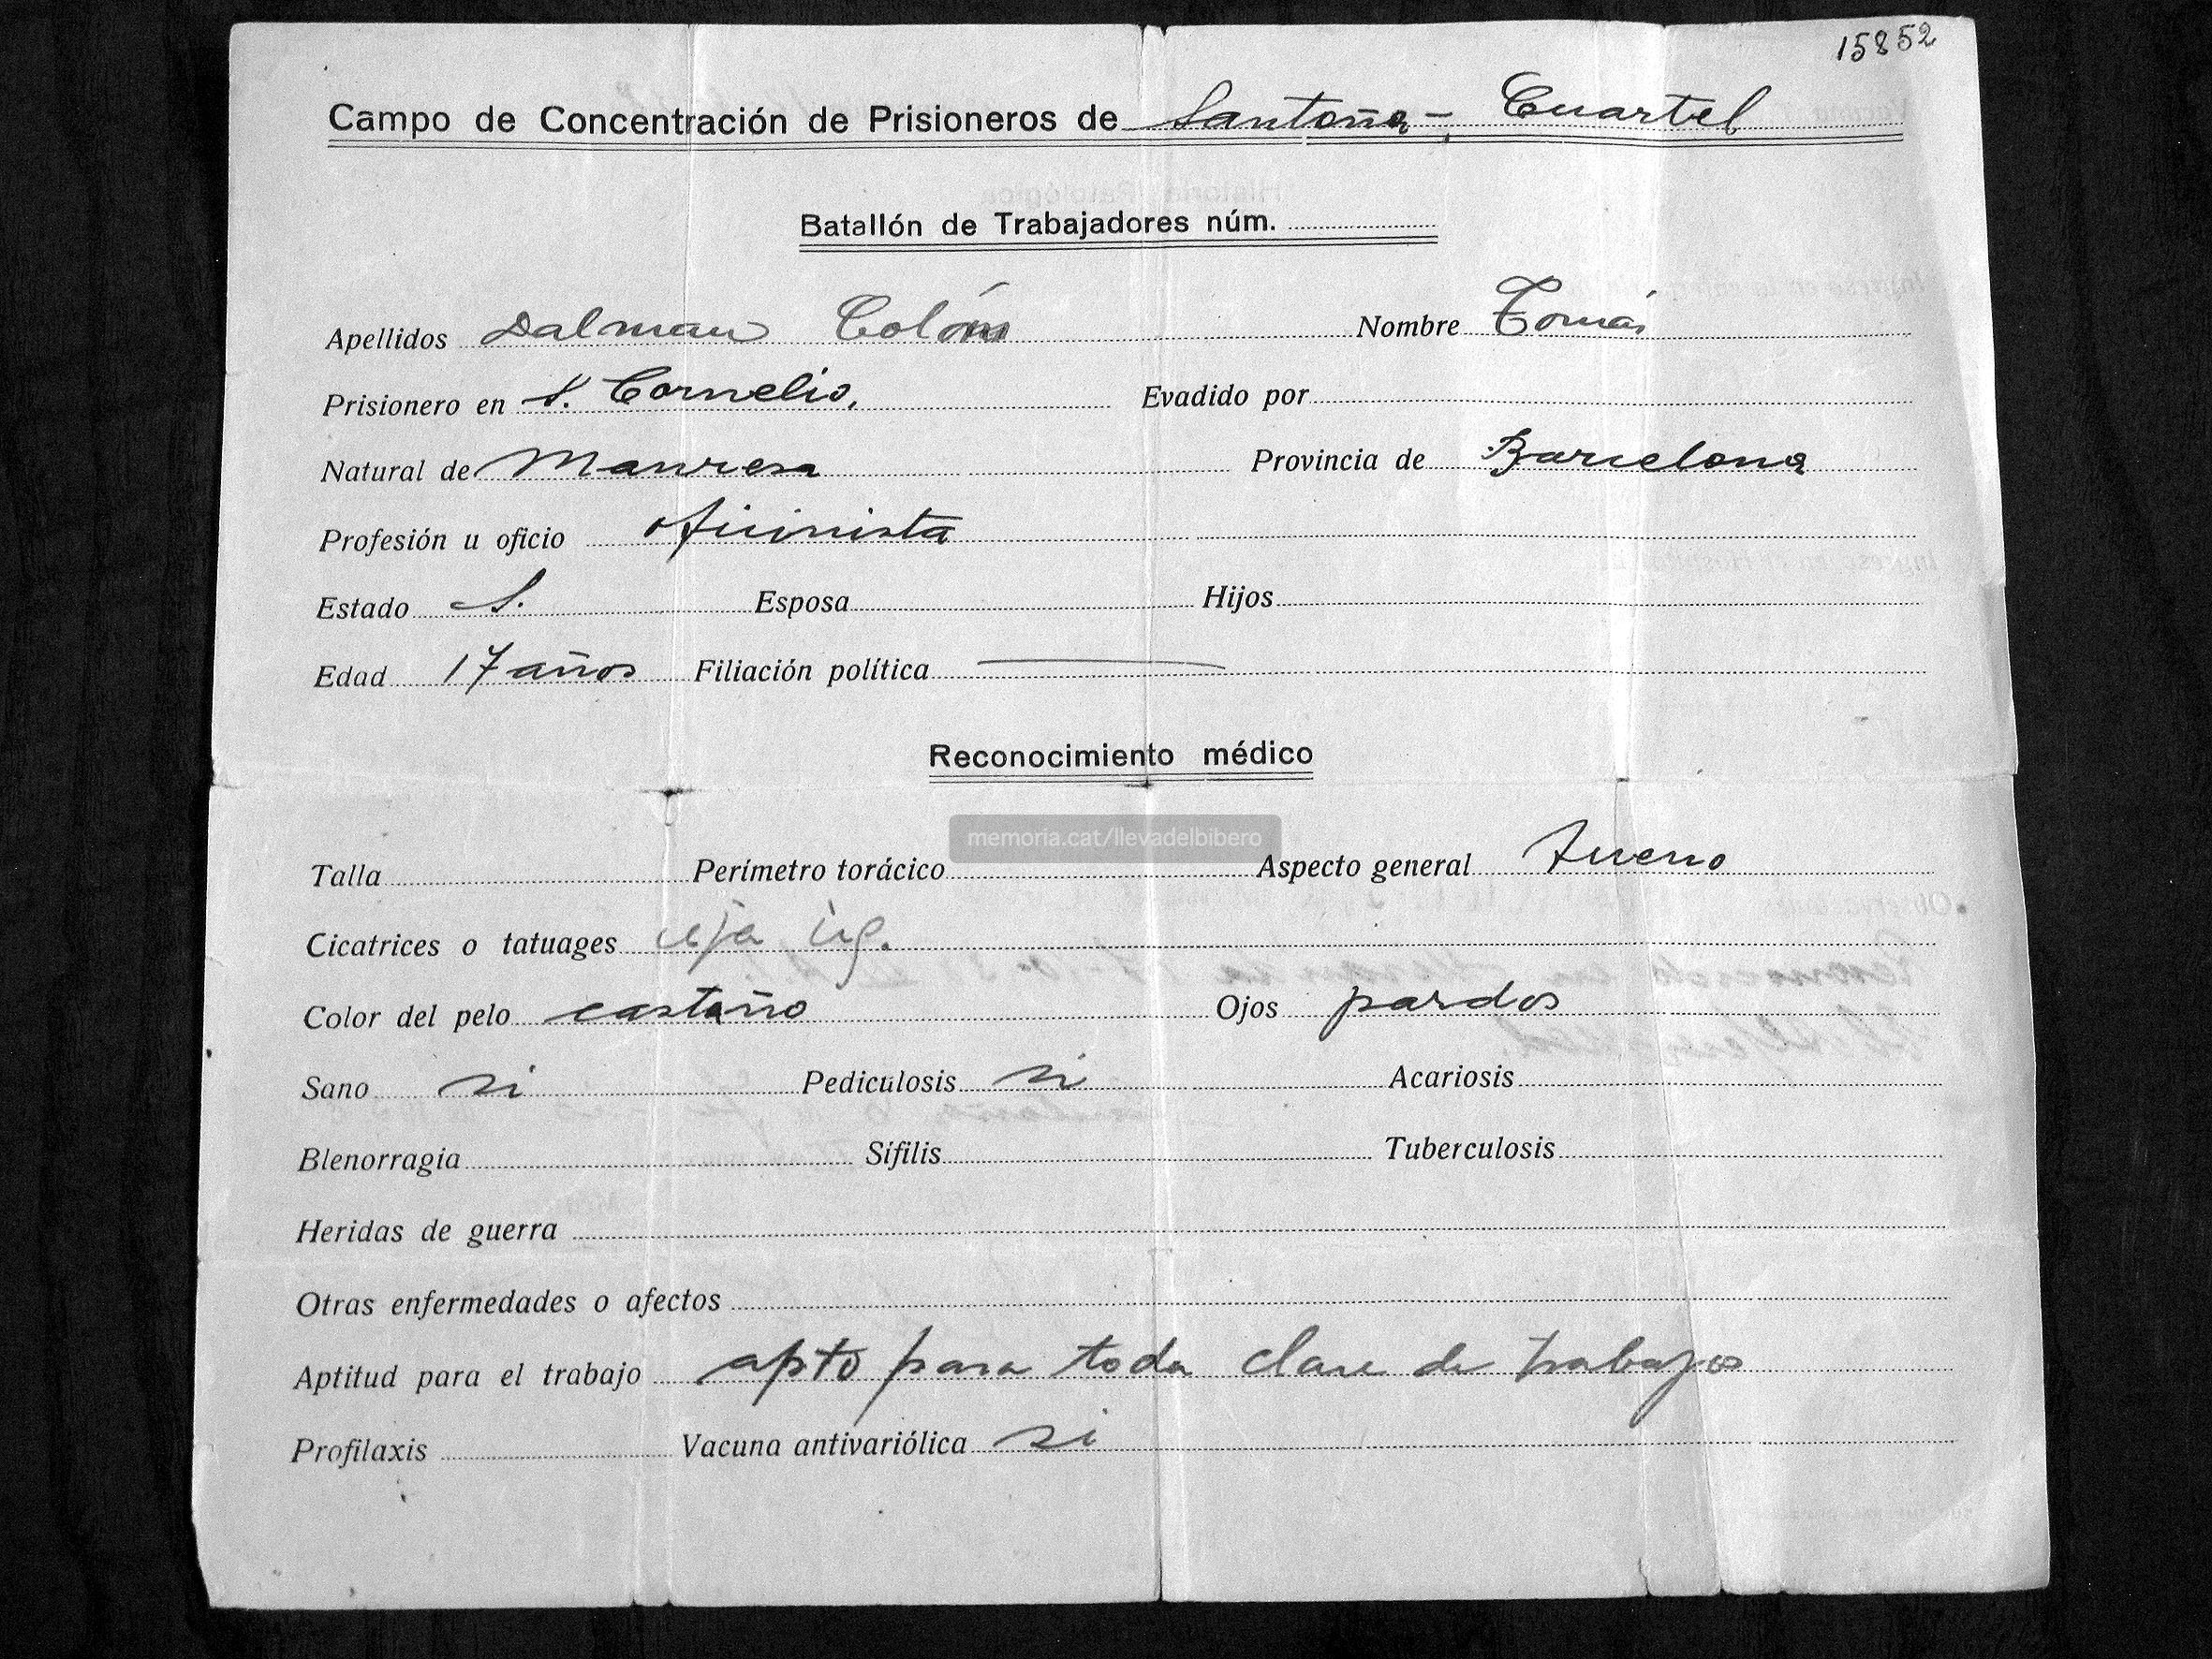 15852
Campo de Concentración de Prisioneros de Santoña - Cuartel
Batallón de Trabajadores núm.
Apellidos Dalmau Colóm Nombre Tomás
Prisionero en S. Cornelio, Evadido por
Natural de Manresa Provincia de Barcelona
Profesión u oficio oficinista
Estado S. Esposa Hijos
Edad 17 años Filiación política
Reconocimiento médico
memoria.cat/llevadelbibero
Talla Perímetro torácico Aspecto general bueno
Cicatrices o tatuages ceja izq.
Color del pelo castaño Ojos pardos
Sano si Pediculosis si Acariosis
Blenorragia Sífilis Tuberculosis
Heridas de guerra
Otras enfermedades o afectos
Aptitud para el trabajo apto para toda clase de trabajos
Profilaxis Vacuna antivariólica si